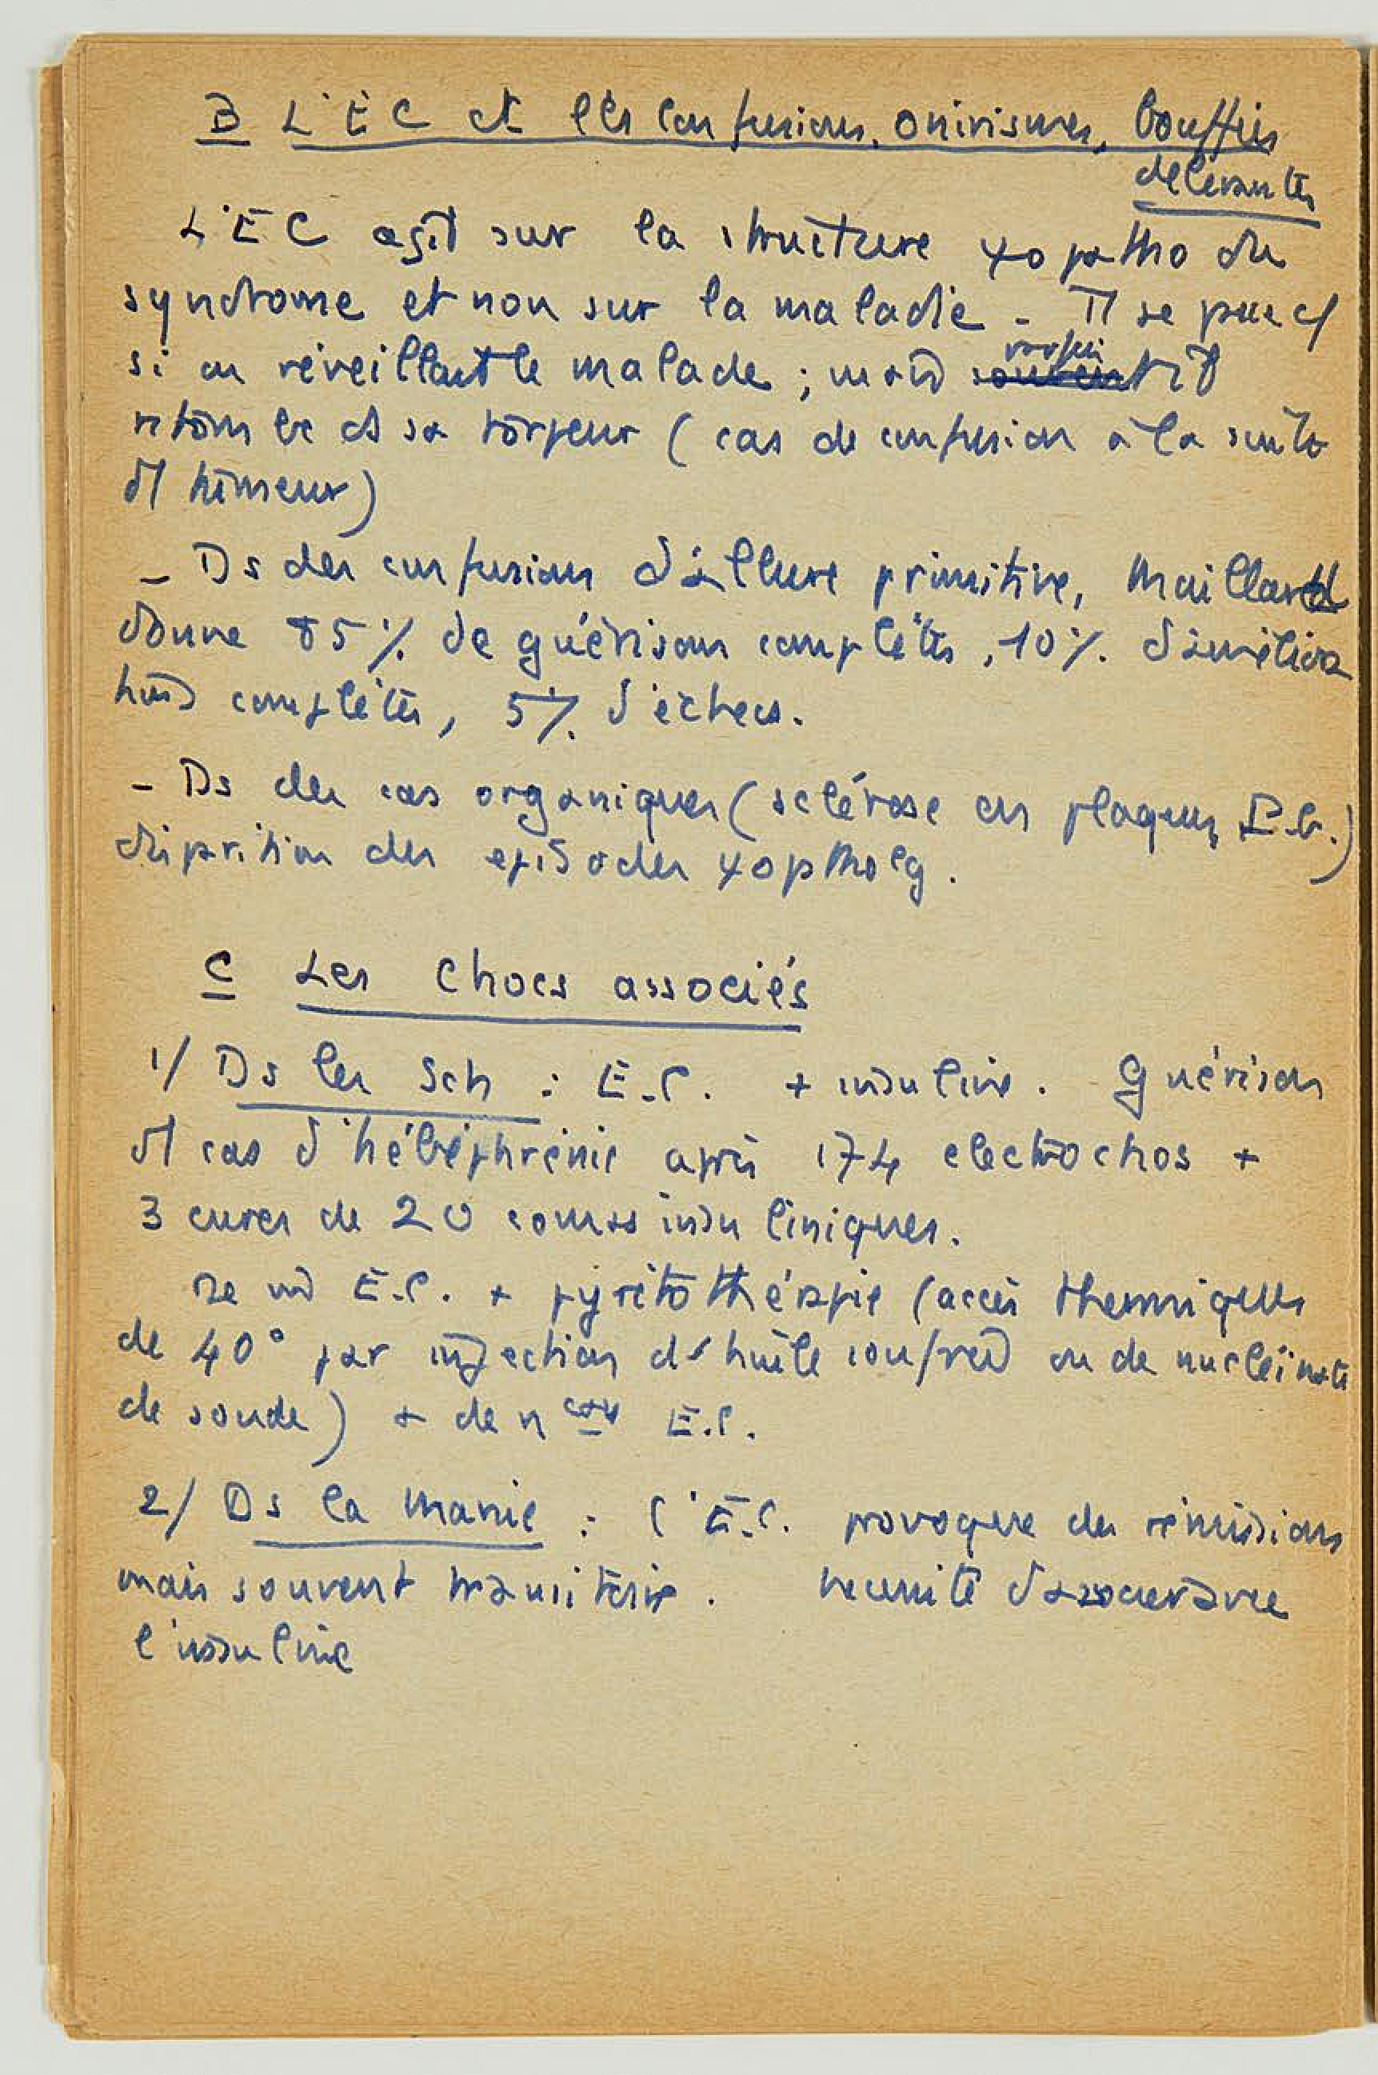 B L'EC et les confusions, onirismes, bouffées
délirantes
L'EC agit sur la structure ψopatho du
syndrome et non sur la maladie - Il se peut
si on réveillant le malade ; mais parfois
retombe ds sa torpeur (cas de confusion à la suite
d'1 tumeur)
- Ds des confusions d'allure primitive, Maillard
donne 85 % de guérisons complètes, 10 % d'améliora
tions complètes, 5 % d'échecs.
- Ds des cas organiques (sclérose en plaques, P.G.)
disparition des episodes ψopathoeg.
C Les Chocs associés
1/ Ds les Sch : E.C. + insuline. Guérison
d'1 cas d'hébéphrénie après 174 electrochos +
3 cures de 20 comas insuliniques.
E.C. + pyrétothérapie (accès thermiques
de 40° par injection d'huile soufrée ou de nucléinate
de soude) + de n E.C.
2/ Ds la Manie : l'E.C. provoque des rémissions
mais souvent transitoire. necessité d'associer avec
l'insuline